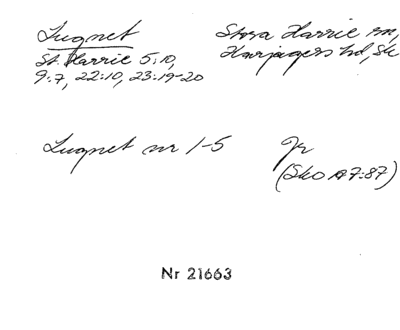 Lugnet
Stora Harrie sn,
St. Harrie 5:10,
Harjagers hd, Sk
9:7, 22:10, 23:19-20
Lugnet nr 1-5
Jr
(SkO A7:87)
Nr 21663